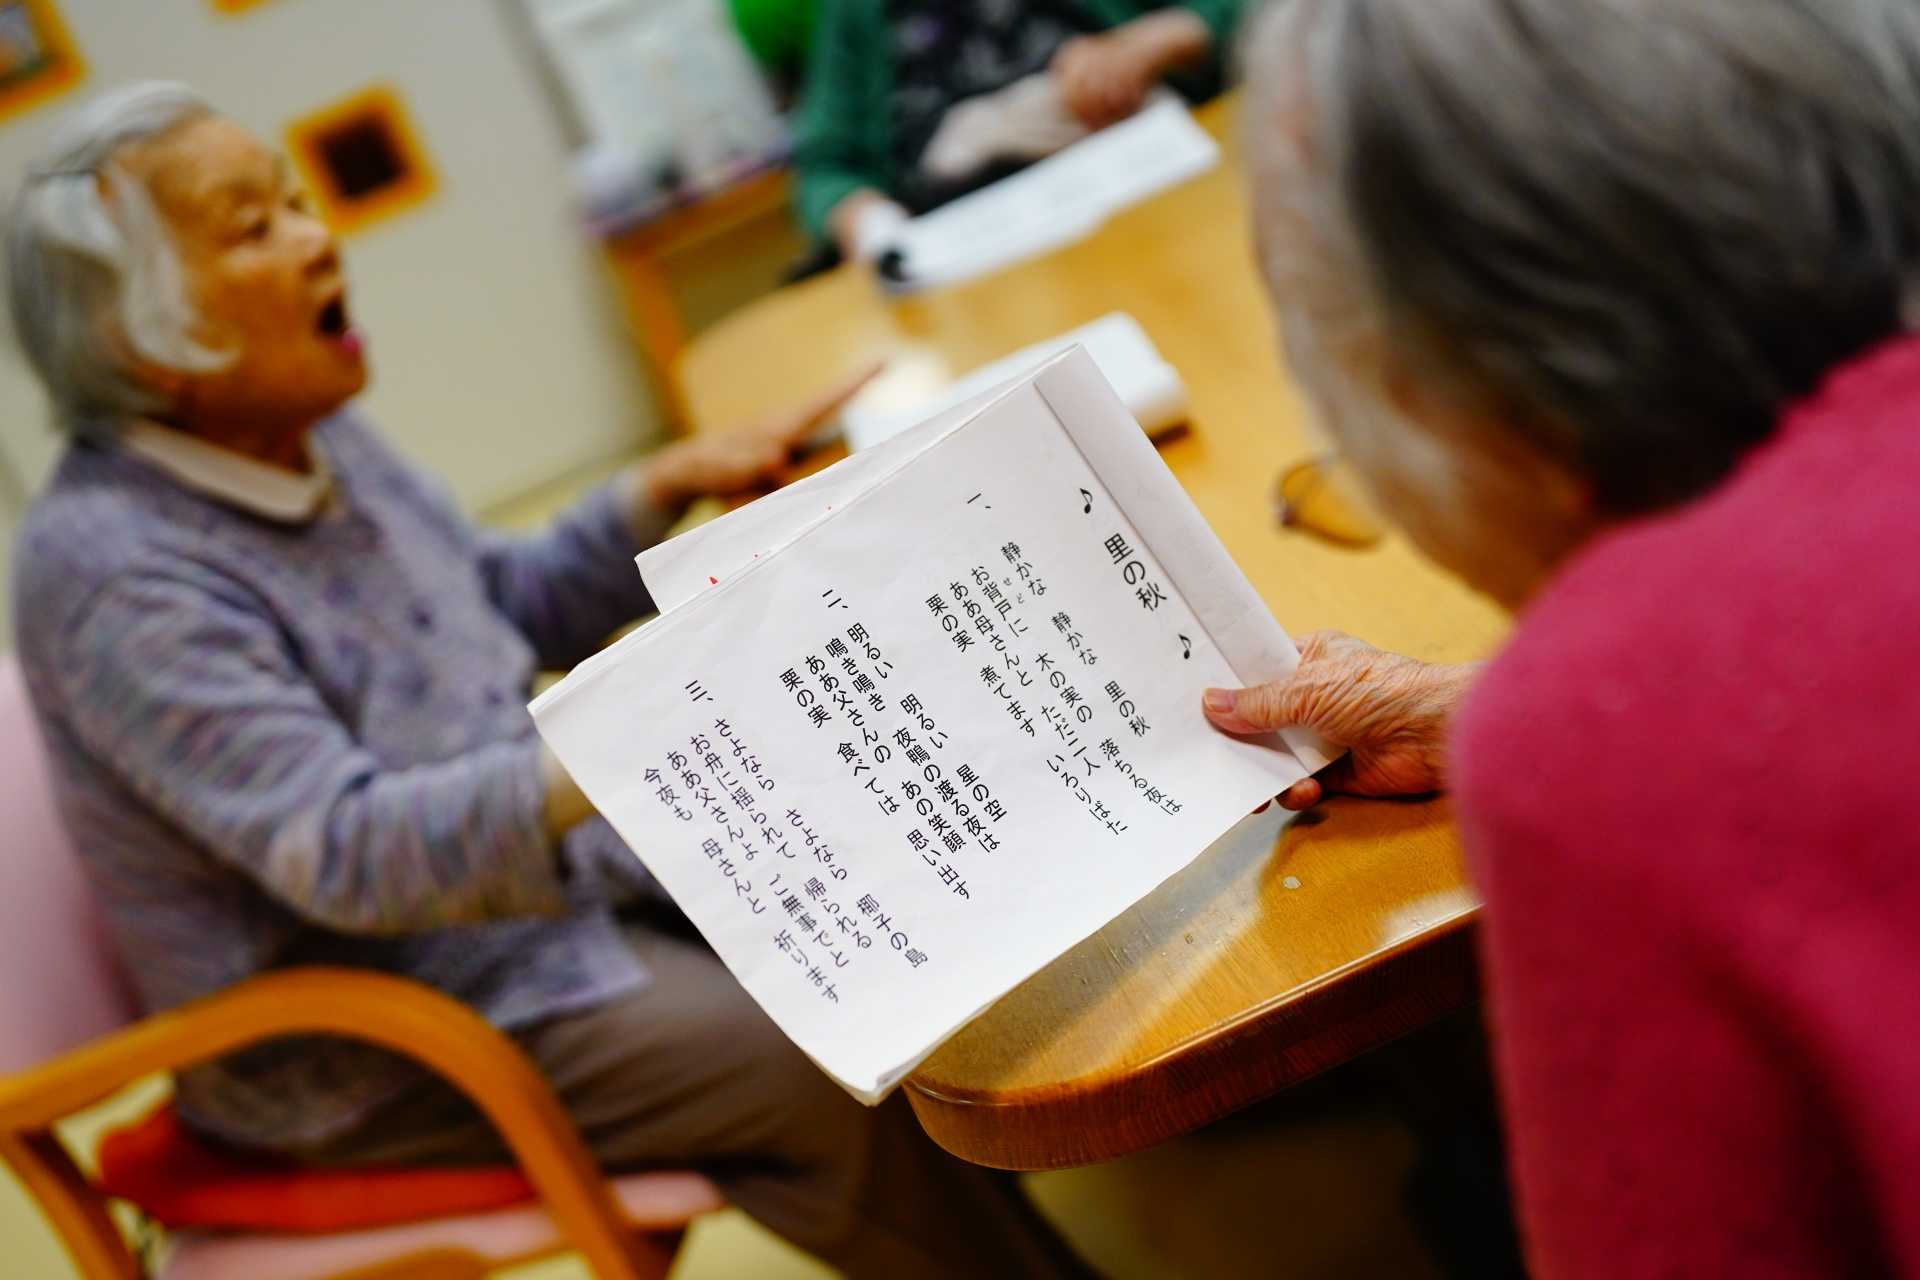 ♪ 里の秋 ♪
一、
静かな 静かな 里の秋
お背戸に 木の実の 落ちる夜は
せど
ああ母さんと ただ二人
栗の実 煮てます いろりばた
二、
明るい 明るい 星の空
鳴き鳴き 夜鴨の渡る夜は
ああ父さんの あの笑顔
栗の実 食べては 思い出す
三、
さよなら さよなら 椰子の島
お舟に揺られて 帰られる
ああ父さんよ ご無事でと
今夜も 母さんと 祈ります